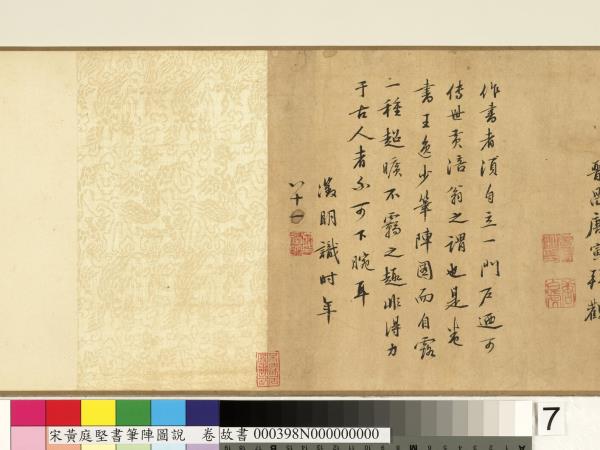 晉昌唐寅拜觀
作書者須自立一門戶迺可
傳世黃涪翁之謂也是卷
書王逸少筆陣圖而自露
一種超曠不羈之趣非得力
于古人者不可下腕耳
徵明識時年
八十一
宋黃庭堅書筆陣圖說 卷 故書 000398N000000000
7